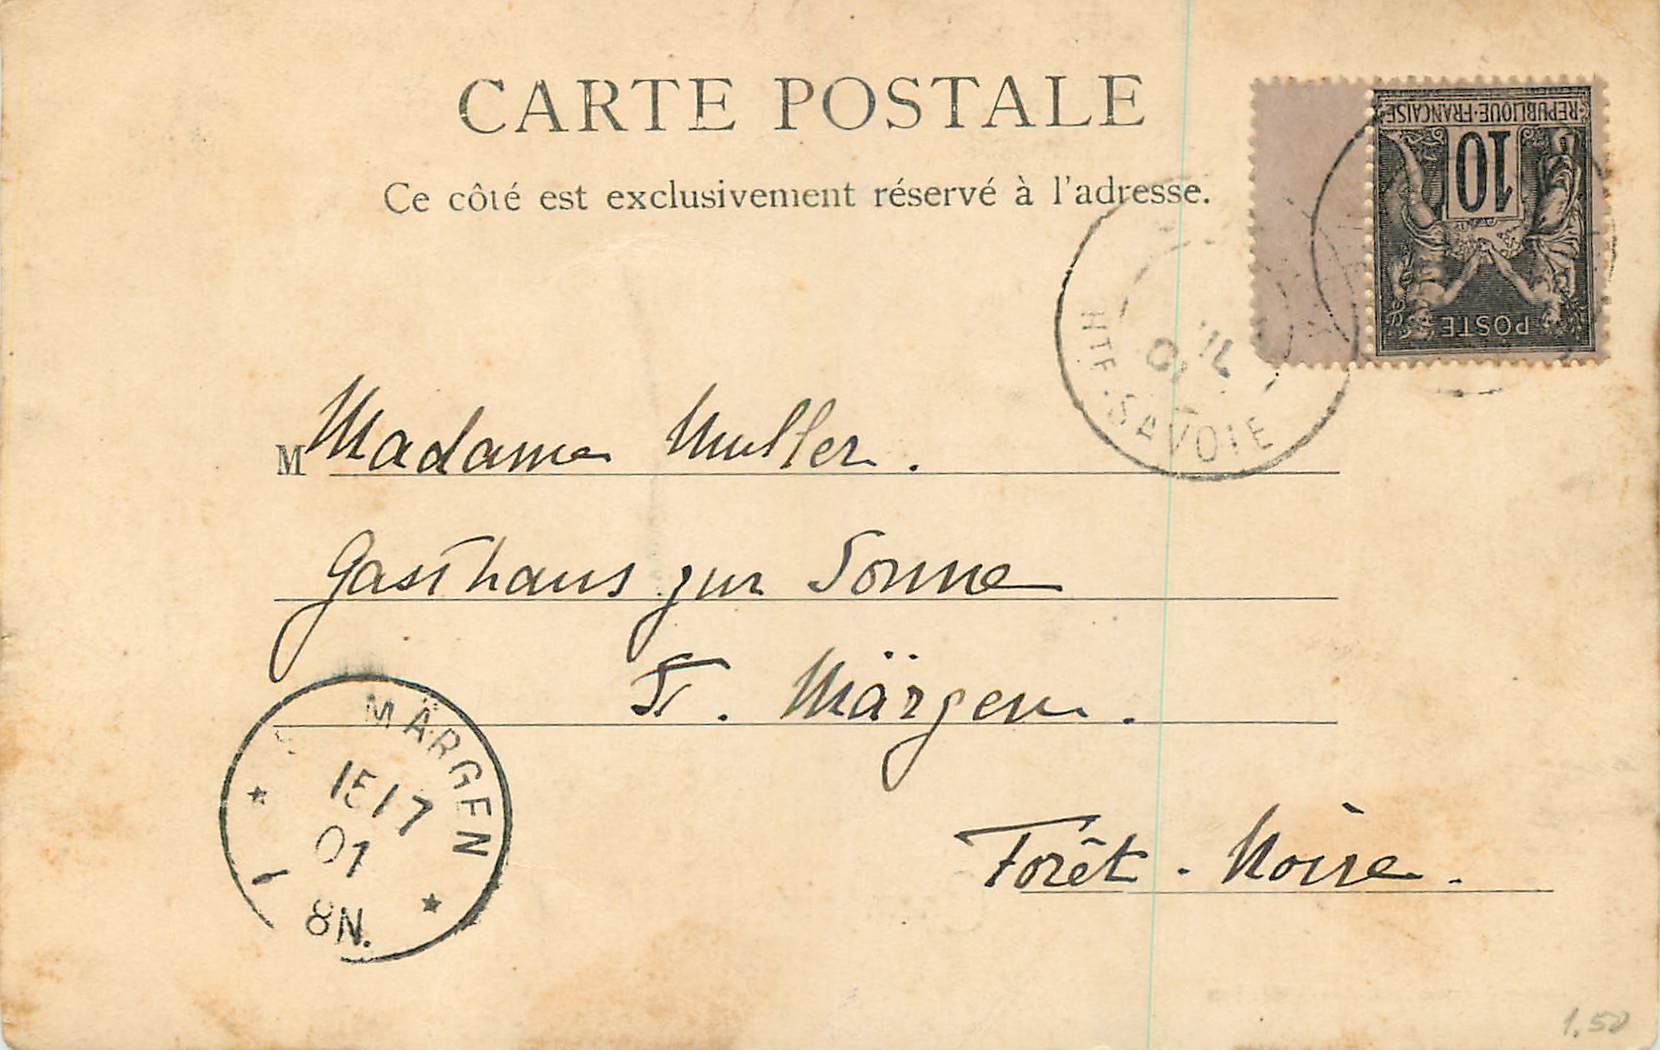 CARTE POSTALE
Ce côté est exclusivement réservé à l'adresse.
REPUBLIQUE·FRANÇAISE
10
POSTE
HTE-SAVOIE
M Madame Muller.
Gasthaus zur Sonne
St. Märgen.
Forêt-Noire.
MÄRGEN
15 / 7
01
8N.
1.50